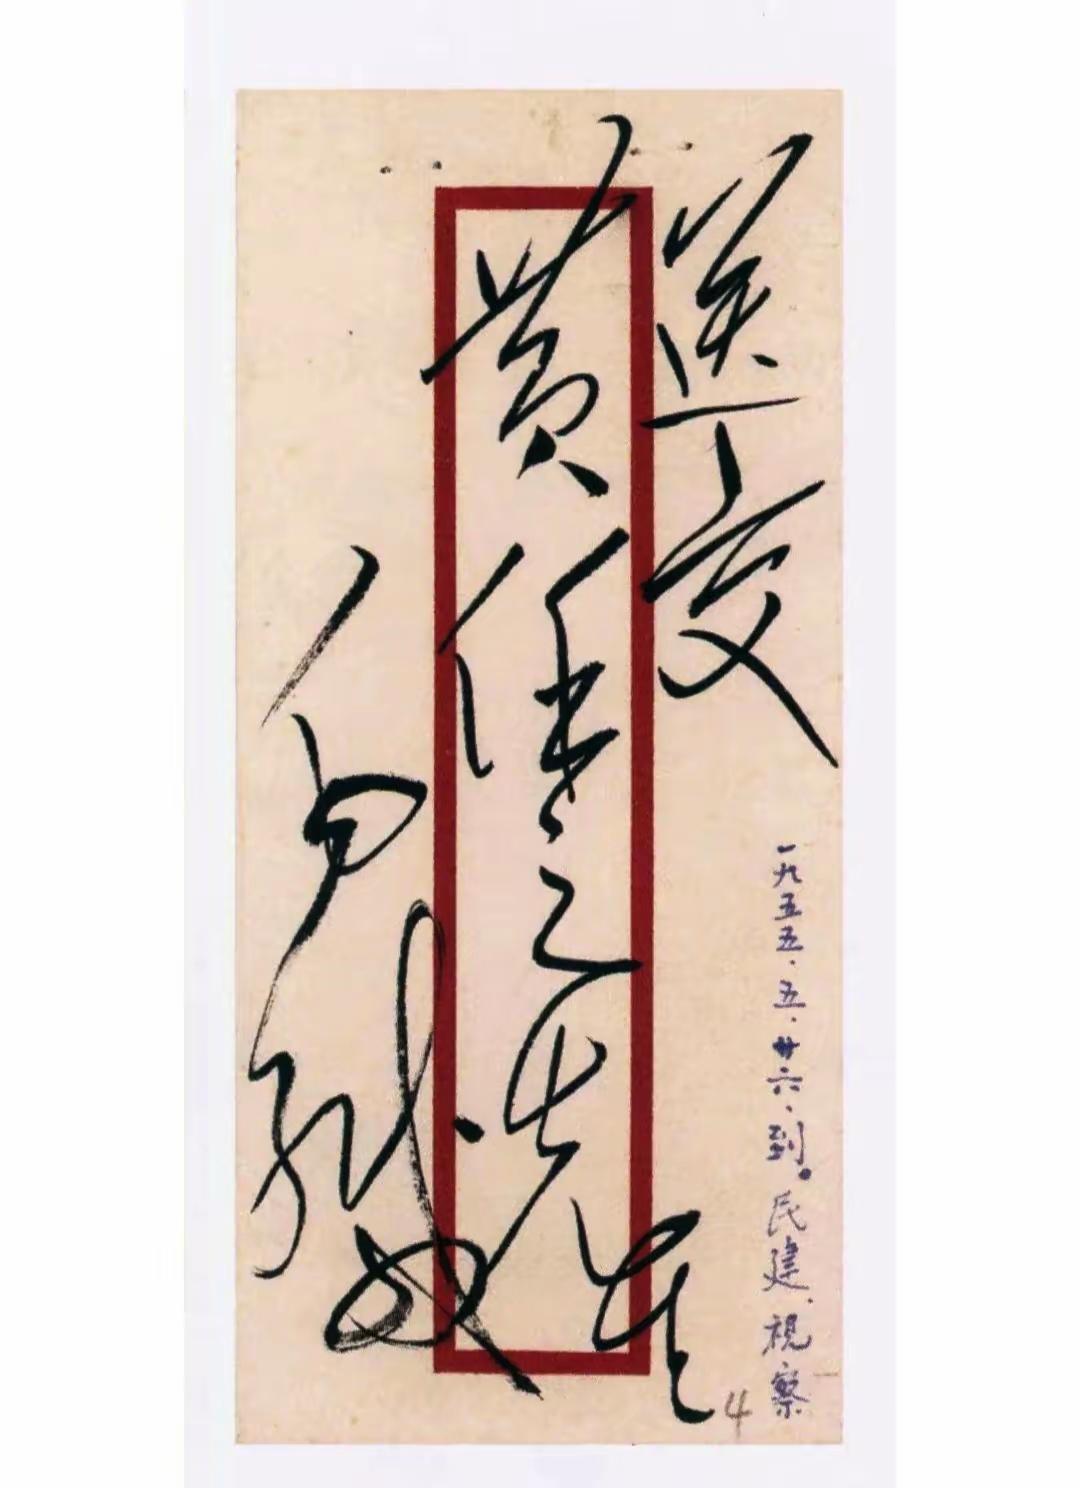 送交
黄任之先生
缄
一九五五、五、廿六、到。民建、視察
4